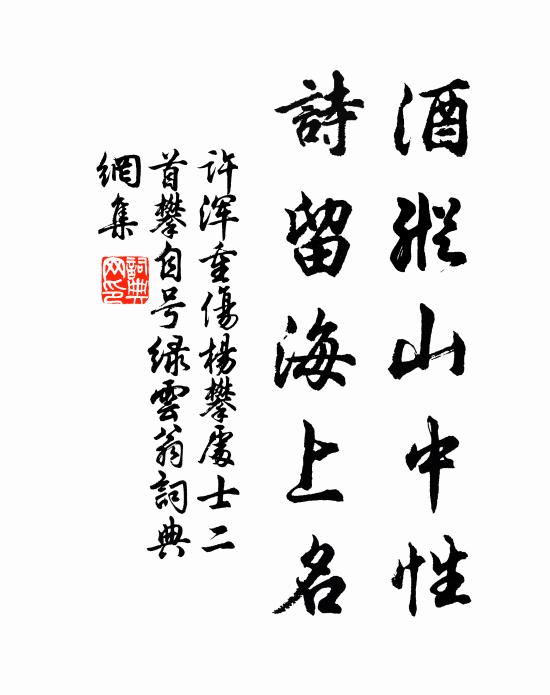 酒縱山中性
詩留海上名
许浑重傷楊攀處士二
首攀自号緑雲翁詞典
網集
詞典
网印